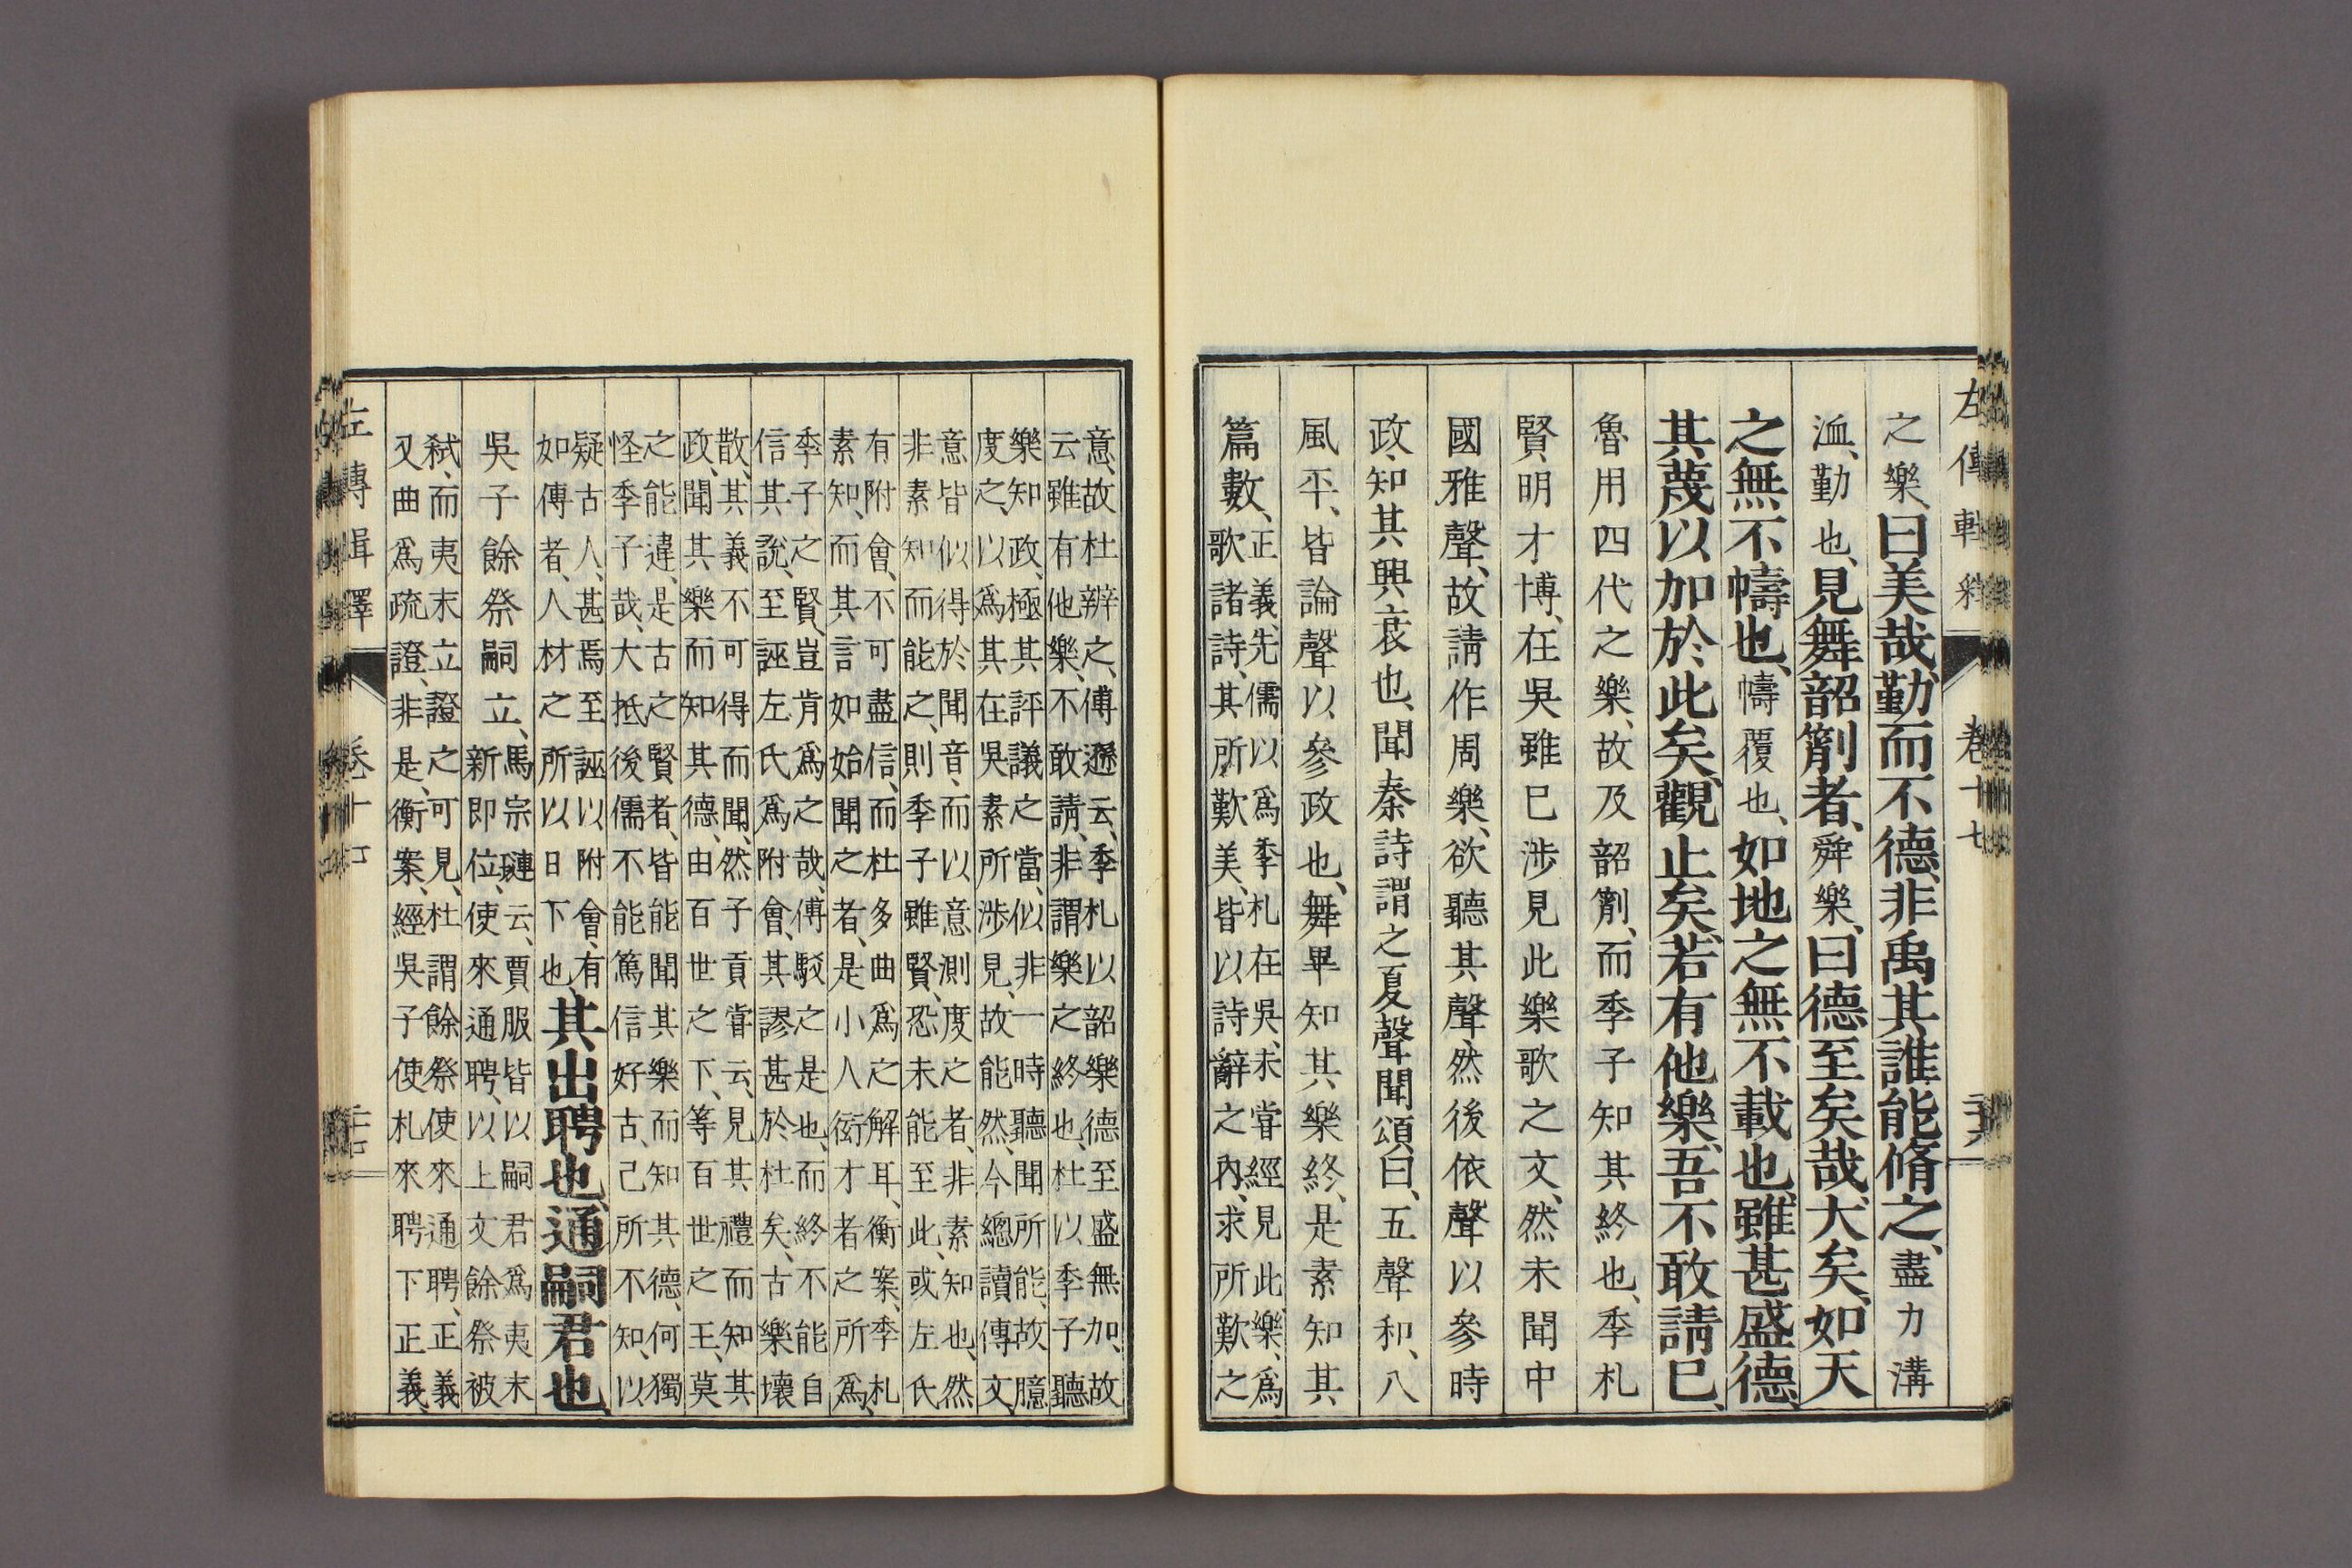 左傳輯釋 卷十七
之樂、曰美哉、勤而不德、非禹其誰能脩之、盡力溝
洫、勤也、見舞韶箾者、舜樂、曰德至矣哉、大矣、如天
之無不幬也、幬覆也、如地之無不載也、雖甚盛德、
其蔑以加於此矣、觀止矣、若有他樂、吾不敢請已、
魯用四代之樂、故及韶箾、而季子知其終也、季札
賢、明才博、在吳雖巳涉見此樂歌之文、然未聞中
國雅聲、故請作周樂、欲聽其聲、然後依聲以參時
政、知其興衰也、聞秦詩謂之夏聲聞頌曰、五聲和、八
風平、皆論聲以參政也、舞畢知其樂終、是素知其
篇數、正義、先儒以爲季札在吳、未嘗經見此樂、爲
歌諸詩、其所歎美、皆以詩辭之內、求所歎之
意、故杜辨之、傅遜云、季札以韶樂德至盛無加、故
云雖有他樂、不敢請、非謂樂之終也、杜以季子聽
樂知政、極其評議之當、似非一時聽聞所能、故臆
度之、以爲其在吳素所涉見、故能然、今總讀傳文、
意皆似得於聞音、而以意測度之者、非素知也、然
非素知而能之、則季子雖賢、恐未能至此、或左氏
有附會、不可盡信、而杜多曲爲之解耳、衡案、季札
素知、而其言如始聞之者、是小人衒才者之所爲、
季子之賢、豈肯爲之哉、傅駁之是也、而終不能自
信其說、至誣左氏爲附會、其謬甚於杜矣、古樂壞
散、其義不可得而聞、然子貢嘗云、見其禮而知其
政、聞其樂而知其德、由百世之下、等百世之王、莫
之能違、是古之賢者、皆能聞其樂而知其德、何獨
怪季子哉、大抵後儒不能篤信好古、己所不知、以
疑古人、甚焉至誣以附會、有
如傳者、人材之所以日下也、其出聘也、通嗣君也、
吳子餘祭嗣立、馬宗璉云、賈服皆以嗣君爲夷末
新即位、使來通聘、以上文餘祭被
弒、而夷末立證之可見、杜謂餘祭使來通聘、正義
又曲爲疏證、非是、衡案、經吳子使札來聘下正義、
左傳輯釋 卷十